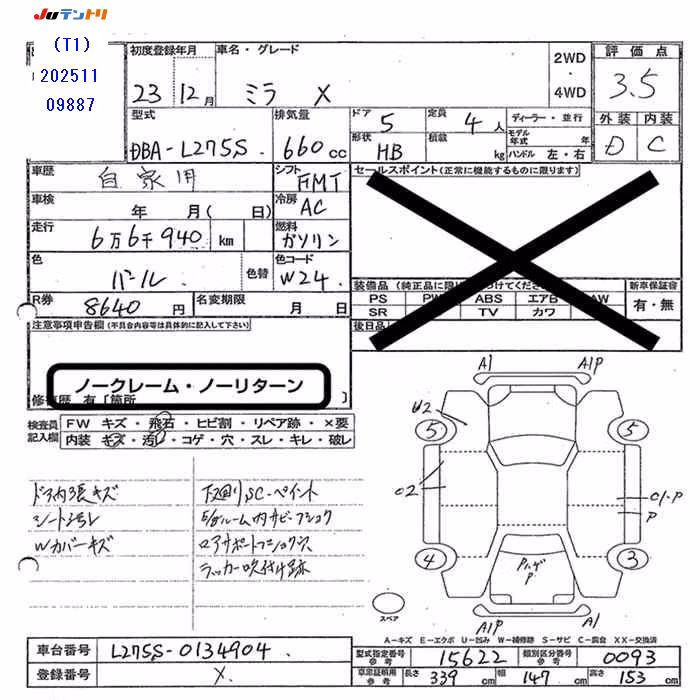 JUテントリ
(T1)
202511
09887
初度登録年月
車名・グレード
2WD
4WD
評価点
23 12月
ミラ X
3.5
型式
排気量
ドア 5
定員 4人
ディーラー・並行
外装 内装
DBA-L275S
660cc
形状 HB
積載 kg
モデル年式 年
ハンドル 左・右
D C
車歴 自家用
シフト FMT
セールスポイント(正常に機能するものに限ります)
車検 年 月( 日)
冷房 AC
走行 6万6千940 km
燃料 ガソリン
色 パール
色替
色コード W24
装備品
新車保証書
PS ABS エアB AW
有・無
SR TV カワ
R券 8640円
名変期限 月 日
後日品
注意事項申告欄(不具合内容等は具体的に記入して下さい)
ノークレーム・ノーリターン
修復歴 有 [箇所 ]
検査員記入欄
FW キズ・飛石・ヒビ割・リペア跡・×要
内装 キズ・汚レ・コゲ・穴・スレ・キレ・破レ
ドア内張キズ
下廻りSC-ペイント
シート汚レ
Wカバーキズ
ラッカー吹付け跡
A1 A1P
U2
5 5
02
P
4 3
Pハゲ
P
A1P A1
スペア
A-キズ E-エクボ U-凹み W-補修跡 S-サビ C-腐食 XX-交換済
車台番号 L275S-0134904
型式指定番号 参考 15622
類別区分番号 参考 0093
登録番号 X
車庫証明用 参考 長さ 339cm 幅 147cm 高さ 153cm